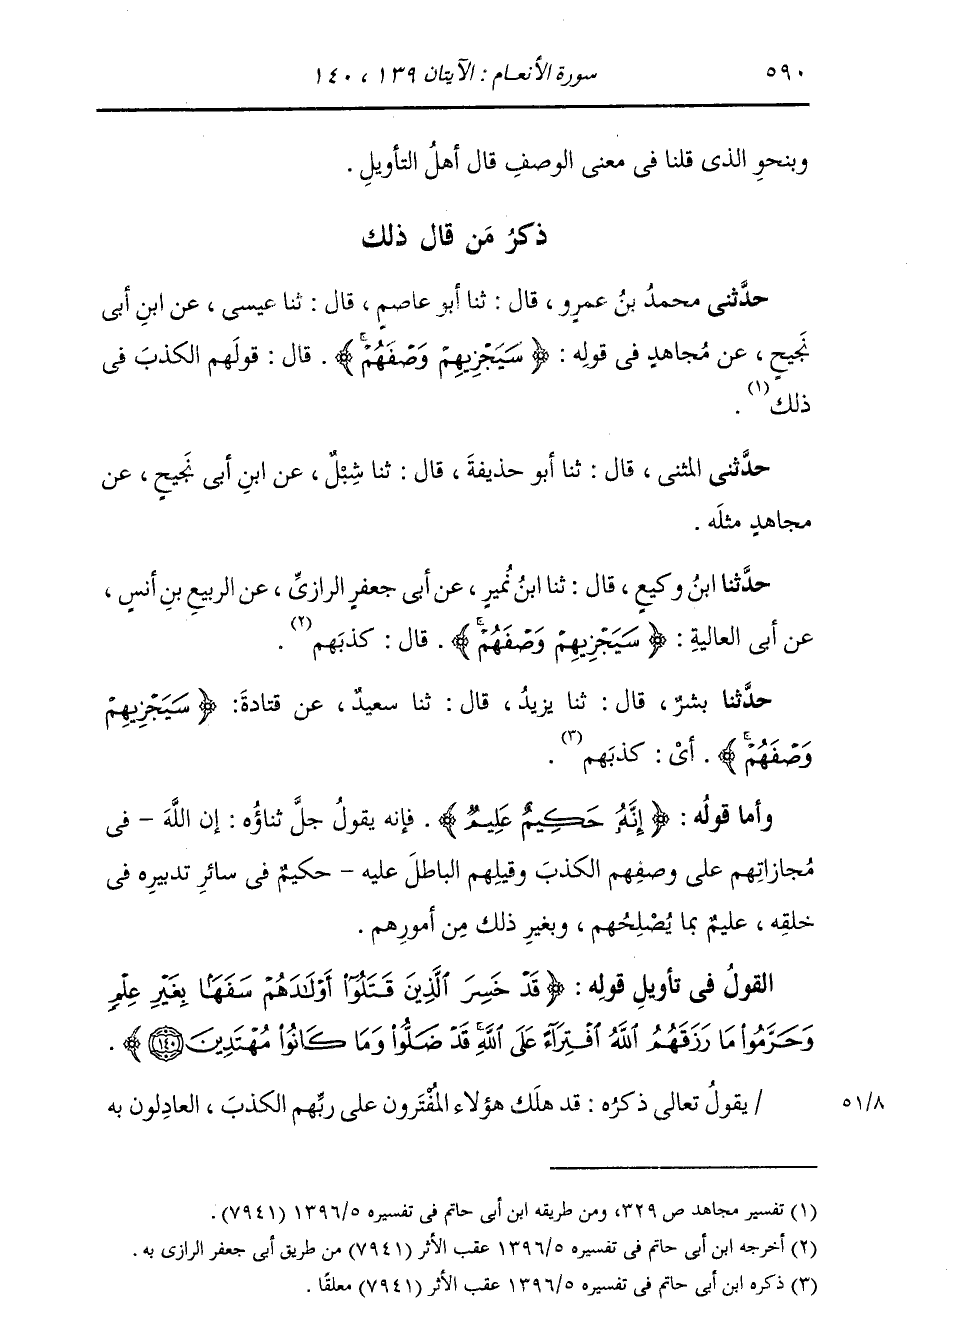 ٥٩٠ سورة الأنعام : الآيتان ١٣٩ ، ١٤٠
وبنحوِ الذى قلنا فى معنى الوصفِ قال أهلُ التأويلِ .
ذكرُ مَن قال ذلك
حدَّثنى محمدُ بنُ عمرٍو ، قال : ثنا أبو عاصمٍ ، قال : ثنا عيسى ، عن ابنِ أبى
نَجيحٍ ، عن مُجاهدٍ فى قولِه : ﴿ سَيَجْزِيهِمْ وَصْفَهُمْۚ ﴾ . قال : قولَهم الكذبَ فى
ذلك(١) .
حدَّثنى المثنى ، قال : ثنا أبو حذيفةَ ، قال : ثنا شِبْلٌ ، عن ابنِ أبى نَجيحٍ ، عن
مجاهدٍ مثلَه .
حدَّثنا ابنُ وكيعٍ ، قال : ثنا ابنُ نُميرٍ ، عن أبى جعفرٍ الرازىِّ ، عن الربيعِ بنِ أنسٍ ،
عن أبى العاليةِ : ﴿ سَيَجْزِيهِمْ وَصْفَهُمْۚ ﴾ . قال : كذبَهم(٢) .
حدَّثنا بشرٌ ، قال : ثنا يزيدُ ، قال : ثنا سعيدٌ ، عن قتادةَ: ﴿ سَيَجْزِيهِمْ
وَصْفَهُمْۚ ﴾ . أىْ : كذبَهم(٣) .
وأما قولُه : ﴿ إِنَّهُۥ حَكِيمٌ عَلِيمٌ ﴾ . فإنه يقولُ جلَّ ثناؤُه : إن اللَّهَ – فى
مُجازاتِهم على وصفِهم الكذبَ وقيلِهم الباطلَ عليه – حكيمٌ فى سائرِ تدبيرِه فى
خلقِه ، عليمٌ بما يُصْلِحُهم ، وبغيرِ ذلك مِن أمورِهم .
القولُ فى تأويلِ قولِه : ﴿ قَدْ خَسِرَ ٱلَّذِينَ قَتَلُوٓا۟ أَوْلَٰدَهُمْ سَفَهًۢا بِغَيْرِ عِلْمٍ
وَحَرَّمُوا۟ مَا رَزَقَهُمُ ٱللَّهُ ٱفْتِرَآءً عَلَى ٱللَّهِۚ قَدْ ضَلُّوا۟ وَمَا كَانُوا۟ مُهْتَدِينَ ١٤٠ ﴾ .
٥١/٨ / يقولُ تعالى ذكرُه : قد هلَك هؤلاء المُفْتَرون على ربِّهم الكذبَ ، العادِلون به
(١) تفسير مجاهد ص ٣٢٩، ومن طريقه ابن أبى حاتم فى تفسيره ١٣٩٦/٥ (٧٩٤١) .
(٢) أخرجه ابن أبى حاتم فى تفسيره ١٣٩٦/٥ عقب الأثر (٧٩٤١) من طريق أبى جعفر الرازى به .
(٣) ذكره ابن أبى حاتم فى تفسيره ١٣٩٦/٥ عقب الأثر (٧٩٤١) معلقًا .